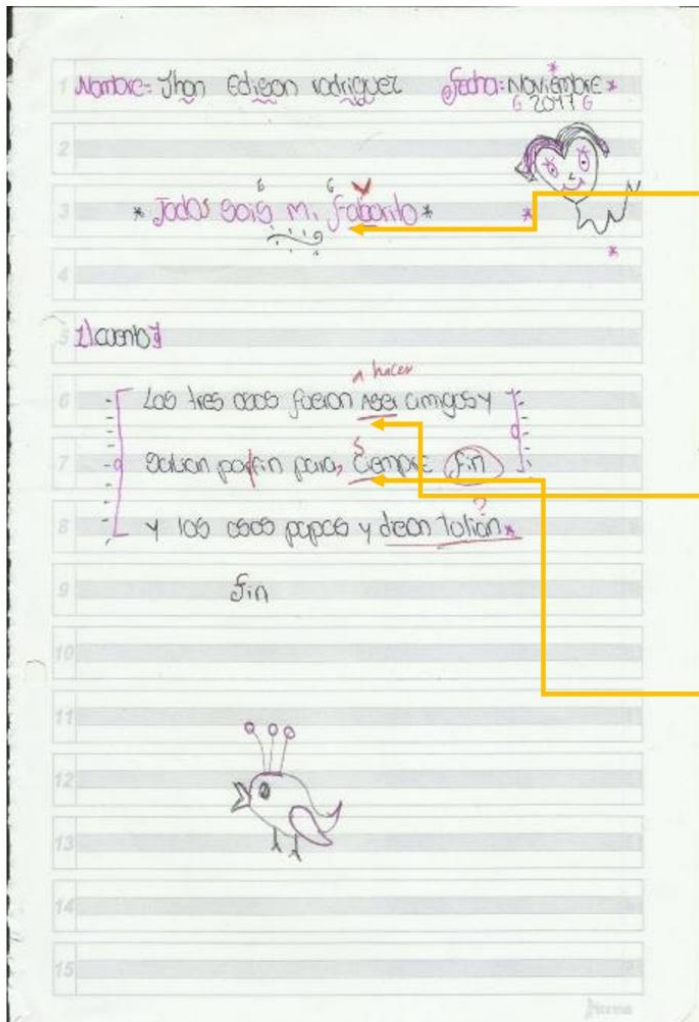 1 Nombre: Jhon Edison rodriguez Fecha: Noviembre
6 2017 6
2
6 6 V
3 * Todos sois mi faborito *
4
5 1) cuento
hacer
6 Los tres osos fueron Aser amigos y
s
7 Salian porfin para, ciempre fin
?
8 y los osos papas y
9 fin
10
11
12
13
14
15